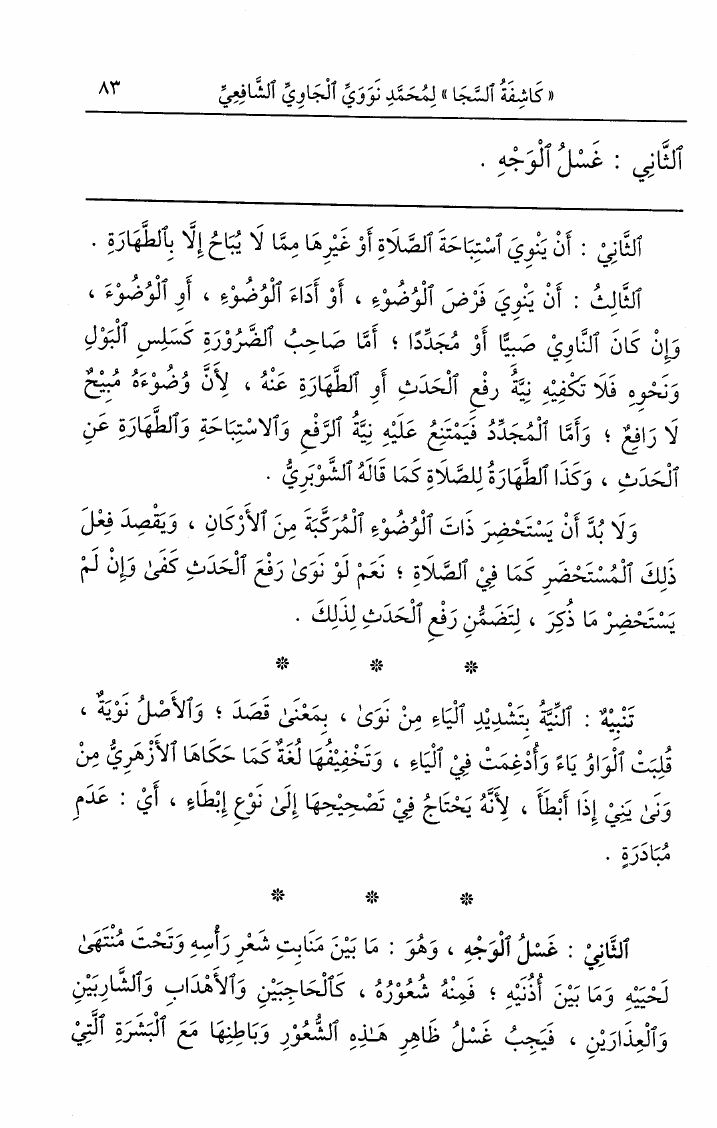 « كَاشِفَةُ ٱلسَّجَا » لِمُحَمَّدِ نَوَوِيِّ ٱلْجَاوِيِّ ٱلشَّافِعِيِّ ٨٣
ٱلثَّانِي : غَسْلُ ٱلْوَجْهِ .
ٱلثَّانِيْ : أَنْ يَنْوِيَ ٱسْتِبَاحَةَ ٱلصَّلَاةِ أَوْ غَيْرِهَا مِمَّا لَا يُبَاحُ إِلَّا بِٱلطَّهَارَةِ .
ٱلثَّالِثُ : أَنْ يَنْوِيَ فَرْضَ ٱلْوُضُوْءِ ، أَوْ أَدَاءَ ٱلْوُضُوْءِ ، أَوِ ٱلْوُضُوْءَ ،
وَإِنْ كَانَ ٱلنَّاوِيْ صَبِيًّا أَوْ مُجَدِّدًا ؛ أَمَّا صَاحِبُ ٱلضَّرُوْرَةِ كَسَلِسِ ٱلْبَوْلِ
وَنَحْوِهِ فَلَا تَكْفِيْهِ نِيَّةُ رَفْعِ ٱلْحَدَثِ أَوِ ٱلطَّهَارَةِ عَنْهُ ، لِأَنَّ وُضُوْءَهُ مُبِيْحٌ
لَا رَافِعٌ ؛ وَأَمَّا ٱلْمُجَدِّدُ فَيَمْتَنِعُ عَلَيْهِ نِيَّةُ ٱلرَّفْعِ وَٱلاسْتِبَاحَةِ وَٱلطَّهَارَةِ عَنِ
ٱلْحَدَثِ ، وَكَذَا ٱلطَّهَارَةُ لِلصَّلَاةِ كَمَا قَالَهُ ٱلشَّوْبَرِيُّ .
وَلَا بُدَّ أَنْ يَسْتَحْضِرَ ذَاتَ ٱلْوُضُوْءِ ٱلْمُرَكَّبَةَ مِنَ ٱلأَرْكَانِ ، وَيَقْصِدَ فِعْلَ
ذَلِكَ ٱلْمُسْتَحْضَرِ كَمَا فِيْ ٱلصَّلَاةِ ؛ نَعَمْ لَوْ نَوَىٰ رَفْعَ ٱلْحَدَثِ كَفَىٰ وَإِنْ لَمْ
يَسْتَحْضِرْ مَا ذُكِرَ ، لِتَضَمُّنِ رَفْعِ ٱلْحَدَثِ لِذَلِكَ .
❊ ❊ ❊
تَنْبِيْهٌ : ٱلنِّيَّةُ بِتَشْدِيْدِ ٱلْيَاءِ مِنْ نَوَىٰ ، بِمَعْنَىٰ قَصَدَ ؛ وَٱلأَصْلُ نَوْيَةٌ ،
قُلِبَتْ ٱلْوَاوُ يَاءً وَأُدْغِمَتْ فِيْ ٱلْيَاءِ ، وَتَخْفِيْفُهَا لُغَةٌ كَمَا حَكَاهَا ٱلأَزْهَرِيُّ مِنْ
وَنَىٰ يَنِيْ إِذَا أَبْطَأَ ، لِأَنَّهُ يَحْتَاجُ فِيْ تَصْحِيْحِهَا إِلَىٰ نَوْعِ إِبْطَاءٍ ، أَيْ : عَدَمِ
مُبَادَرَةٍ .
❊ ❊ ❊
ٱلثَّانِيْ : غَسْلُ ٱلْوَجْهِ ، وَهُوَ : مَا بَيْنَ مَنَابِتِ شَعْرِ رَأْسِهِ وَتَحْتَ مُنْتَهَىٰ
لَحْيَيْهِ وَمَا بَيْنَ أُذُنَيْهِ ؛ فَمِنْهُ شُعُوْرُهُ ، كَٱلْحَاجِبَيْنِ وَٱلأَهْدَابِ وَٱلشَّارِبَيْنِ
وَٱلْعِذَارَيْنِ ، فَيَجِبُ غَسْلُ ظَاهِرِ هَـٰذِهِ ٱلشُّعُوْرِ وَبَاطِنِهَا مَعَ ٱلْبَشَرَةِ ٱلَّتِيْ